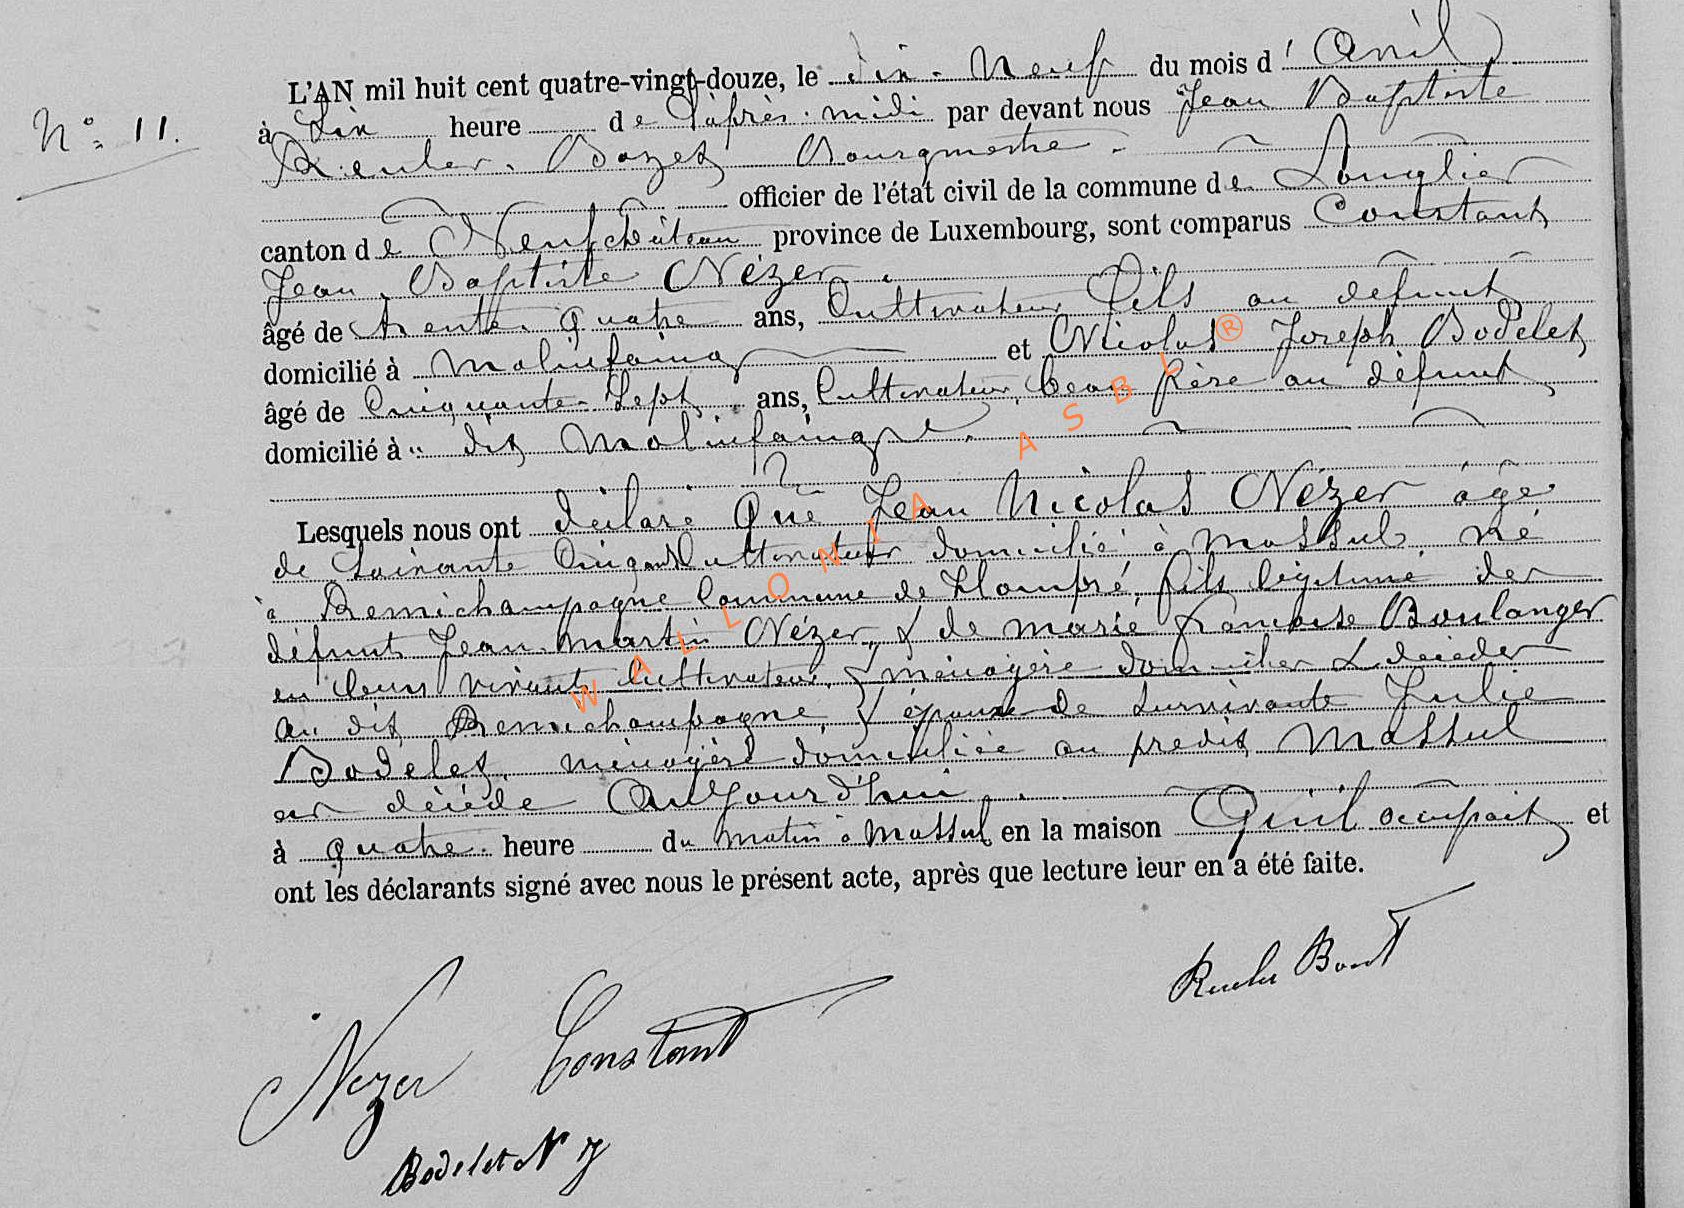 N° 11.
L'AN mil huit cent quatre-vingt-douze, le dix-Neuf du mois d'Avril
à Six heure de l'après-midi par devant nous Jean Baptiste
Reuler-Bozet Bourgmestre.
officier de l'état civil de la commune de Longlier
canton de Neufchâteau province de Luxembourg, sont comparus Constant
Jean-Baptiste Nézer.
âgé de trente-quatre ans, Cultivateur fils au défunt
domicilié à Molinfaing et Nicolas Joseph Bodelet
âgé de Cinquante-Sept ans, Cultivateur, beau frère au défunt
domicilié à dit Molinfaing.
Lesquels nous ont déclaré Que Jean Nicolas Nézer âgé
de Soixante Cinq ans Cultivateur domicilié à Massul, Né
à Remichampagne Commune de Hompré, fils légitime des
défunts Jean-Martin Nézer, & de Marie françoise Boulanger
en leurs vivants Cultivateur & ménagère domicilier & décéder
au dit Remichampagne & époux de Survivante Julie
Bodelet, ménagère domiciliée au predit Massul
est décédé Aujourd'hui
à quatre heure du matin à Massul en la maison Qu'il occupait et
ont les déclarants signé avec nous le présent acte, après que lecture leur en a été faite.
Nezer Constant
Bodelet N J
WALLONIA ASBL ®